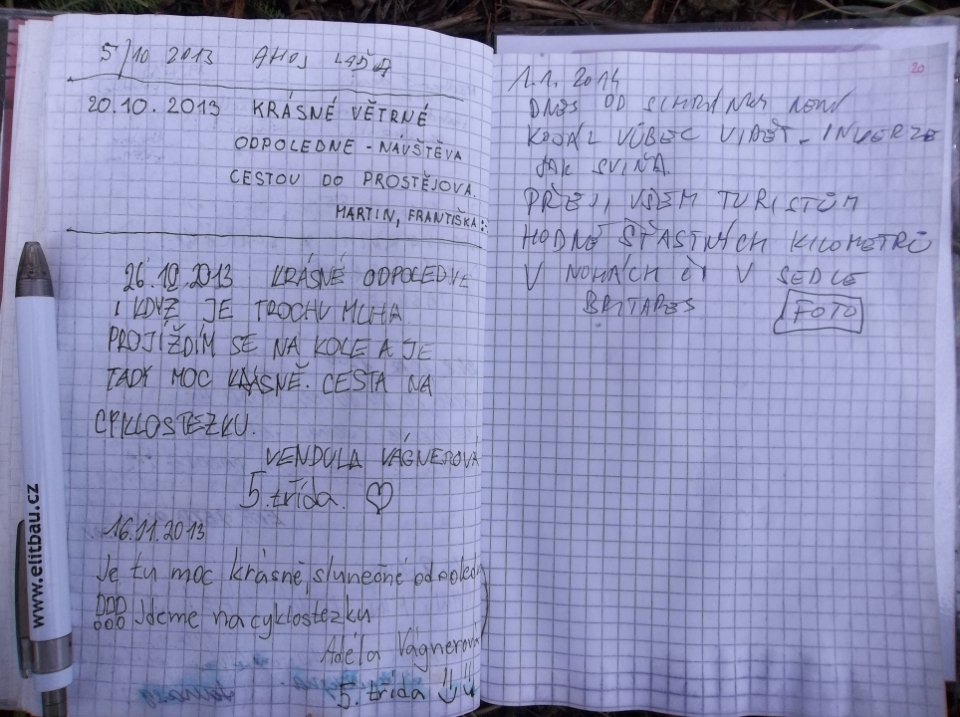 5/10 2013 AHOJ LÁĎA
20.10.2013 KRÁSNÉ VĚTRNÉ
ODPOLEDNE - NÁVŠTĚVA
CESTOU DO PROSTĚJOVA.
MARTIN, FRANTIŠKA
26.10.2013 KRÁSNÉ ODPOLEDNE
I KDYŽ JE TROCHU MLHA.
PROJÍŽDÍM SE NA KOLE A JE
TADY MOC KRÁSNĚ. CESTA NA
CYKLOSTEZKU.
VENDULA VÁGNEROVÁ
5. třída. ♡
16.11.2013
Je tu moc krásně, slunečné odpoledne
Jdeme na cyklostezku
Adéla Vágnerová
5. třída
www.elitbau.cz
20
1.1. 2014
DNES OD SCHRÁNKY NENÍ
KOJÁL VŮBEC VIDĚT - INVERZE
JAK SVIŇA.
PŘEJI VŠEM TURISTŮM
HODNĚ ŠŤASTNÝCH KILOMETRŮ
V NOHÁCH ČI V SEDLE
BRITARES
FOTO